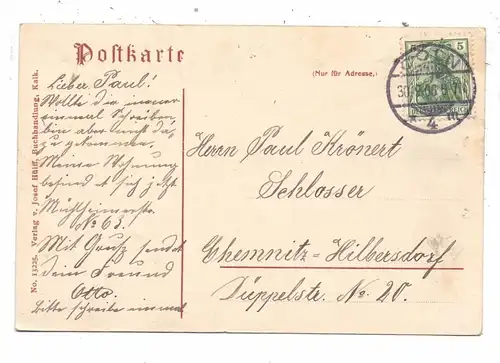 Postkarte
(Nur für Adresse.)
5 5
CÖLN
4
Lieber Paul!
Wollte dir immer
einmal schreiben,
bin aber nicht da-
zu gekommen.
Meine Wohnung
befindet sich jetzt
Mülheimerstr.
No 63.
Mit Gruß sendet
dein Freund
Otto.
Bitte schreibe einmal
Herrn Paul Krönert
Schlosser
Chemnitz-Hilbersdorf
Düppelstr. No. 20.
No. 13225. Verlag v. Josef Hülff, Buchhandlung, Kalk.